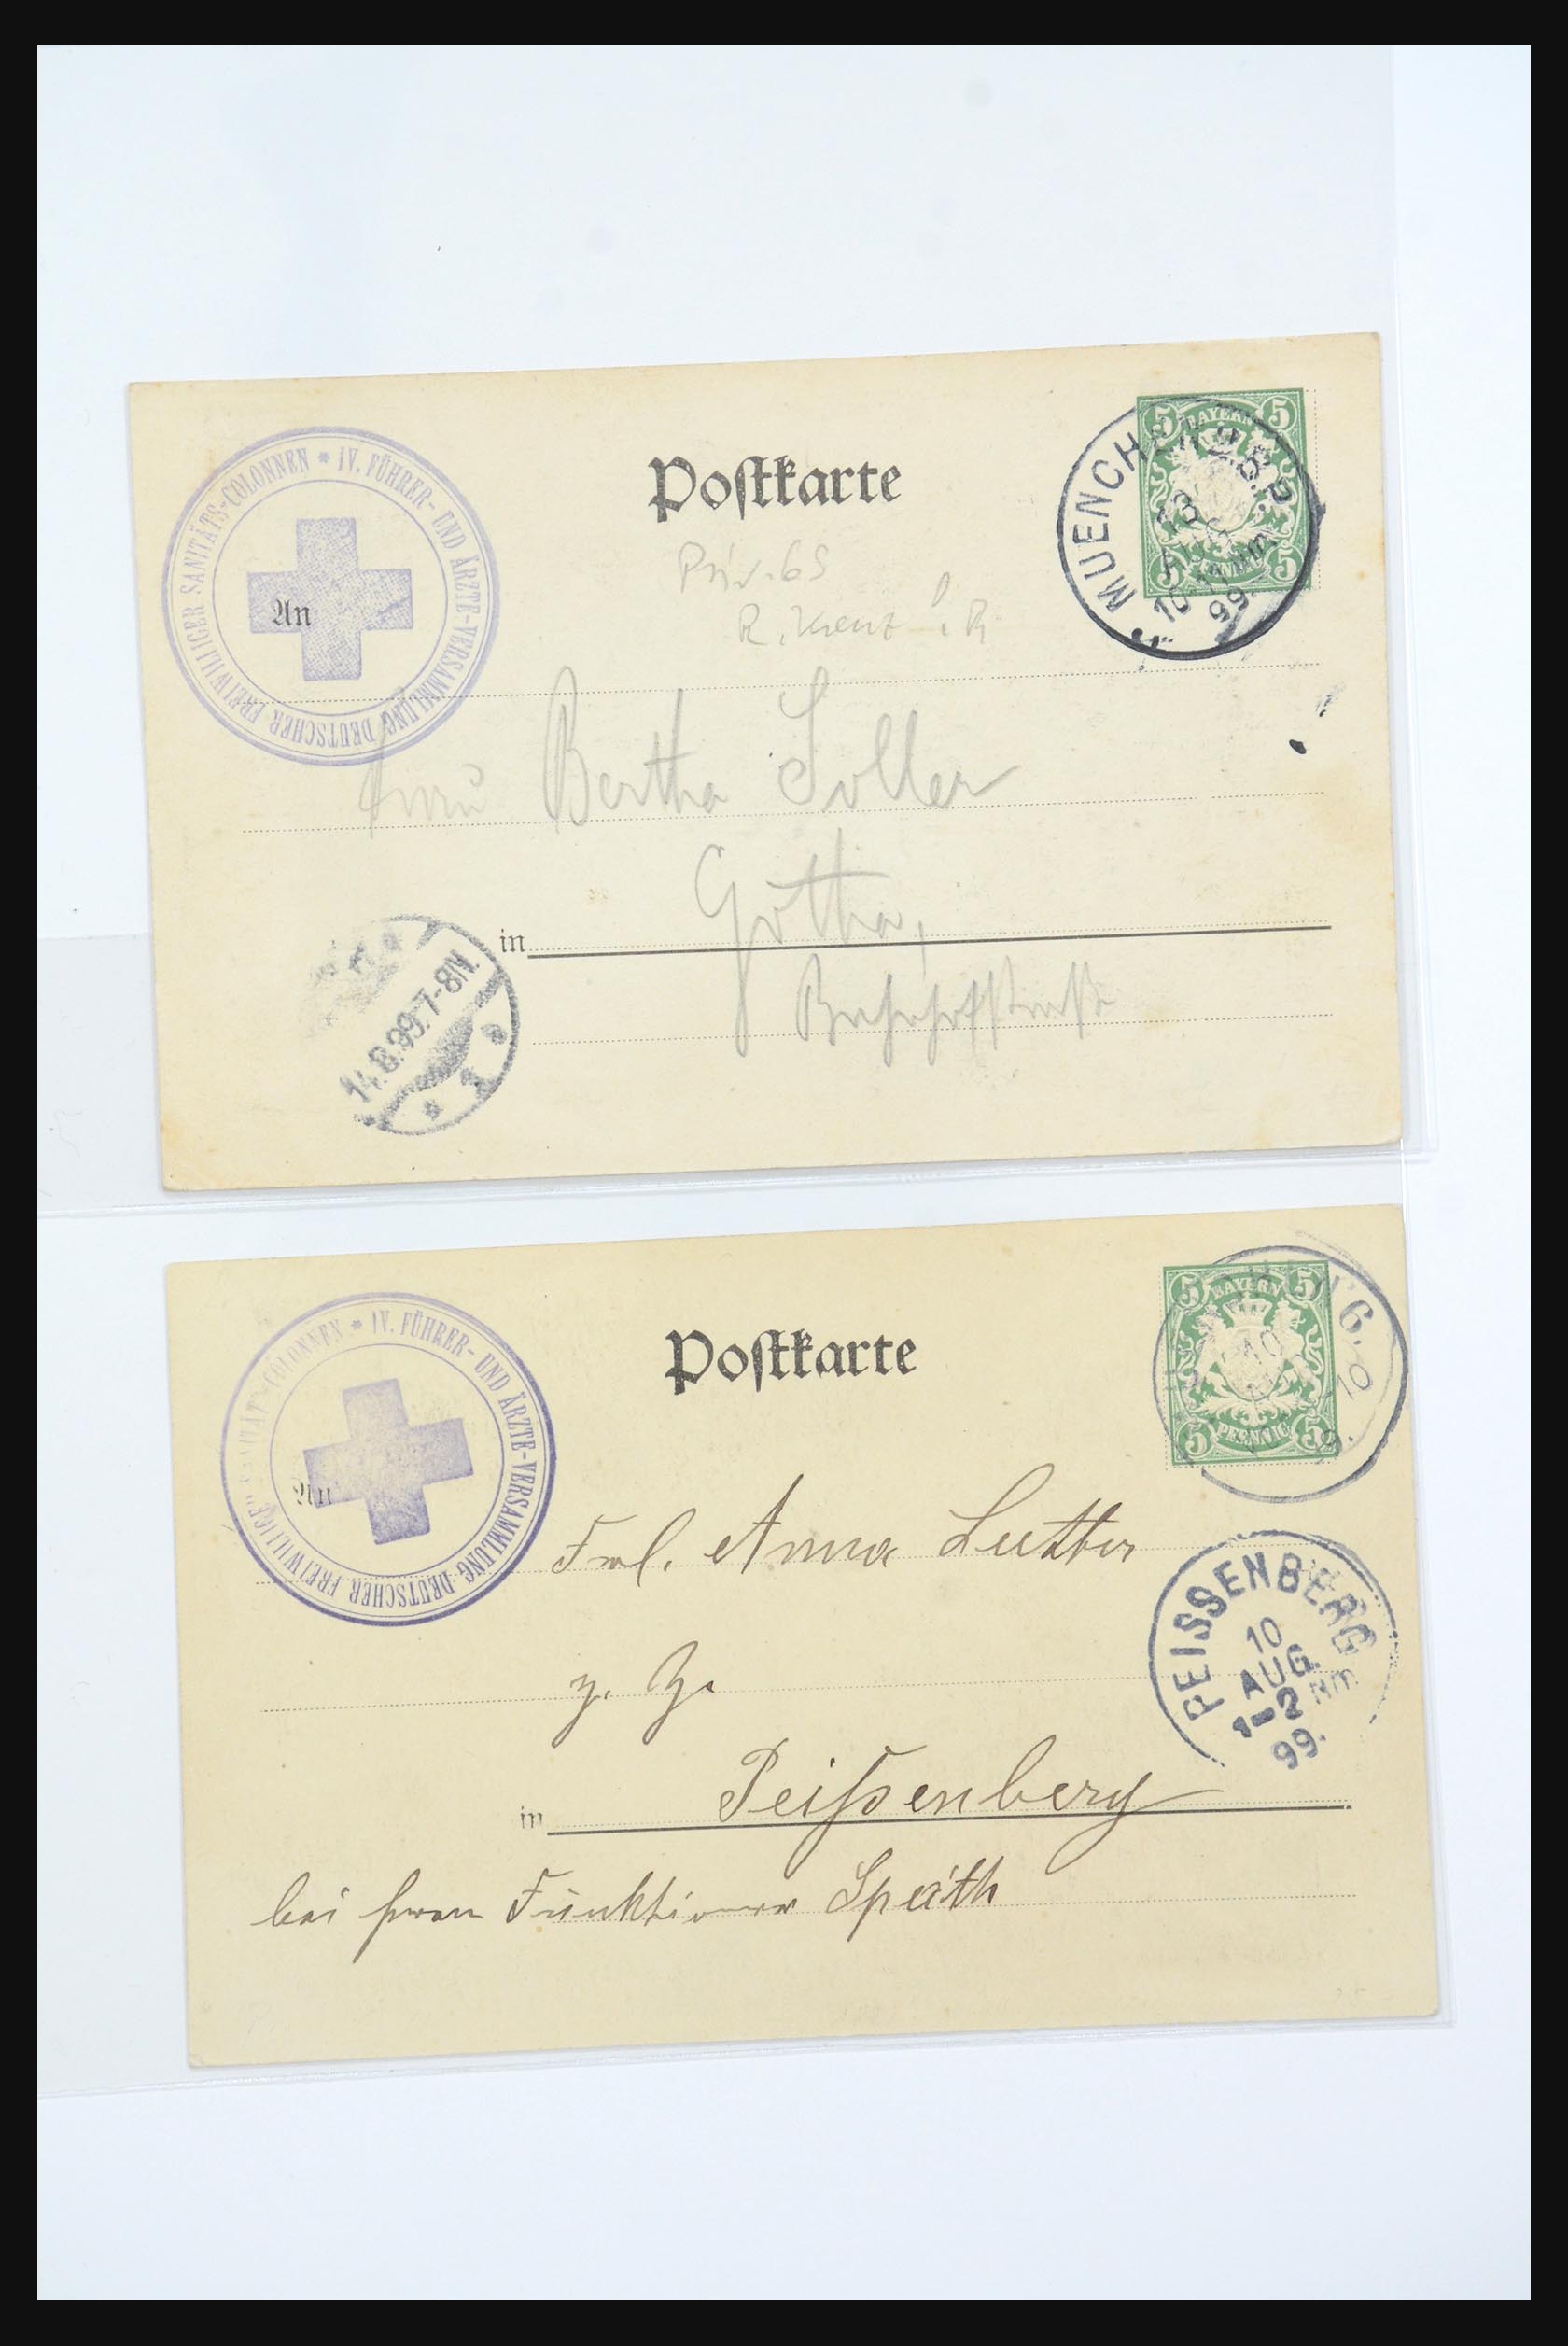 IV. FÜHRER- UND ÄRZTE-VERSAMMLUNG DEUTSCHER FREIWILLIGER SANITÄTS-COLONNEN *
Postkarte
5 BAYERN 5
5 PFENNIG 5
MUENCHEN
13
AUG
99.
An
Priv. 65
R. Kreuz
Frau Bertha Soller
in Gotha,
Bahnhofstraße
14.8.99.7-8N.
1
IV. FÜHRER- UND ÄRZTE-VERSAMMLUNG DEUTSCHER FREIWILLIGER SANITÄTS-COLONNEN *
Postkarte
5 BAYERN 5
5 PFENNIG 5
10
An
Frl. Anna Luther
PEISSENBERG
10
AUG.
1-2 NM
99.
z. Z.
in Peißenberg
bei Frau Funktionär Späth